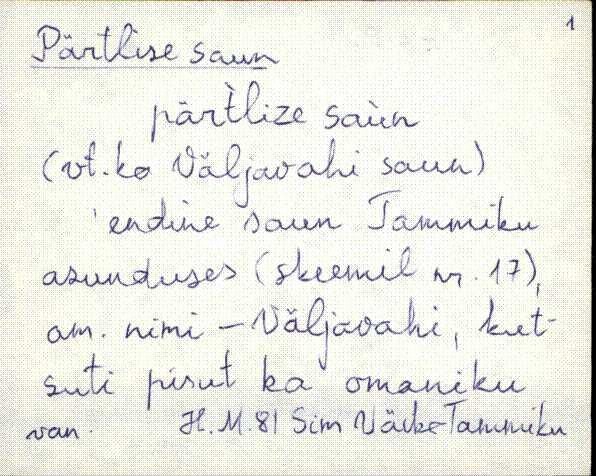 1
Pärtlise saun
pär̀tlize saùn
(vt. ka Väljavahi saun)
'endine saun Tammiku
asunduses (skeemil nr. 17),
am. nimi – Väljavahi, kut-
suti pisut ka omaniku
van. H. M. 81 Sim Väike-Tammiku